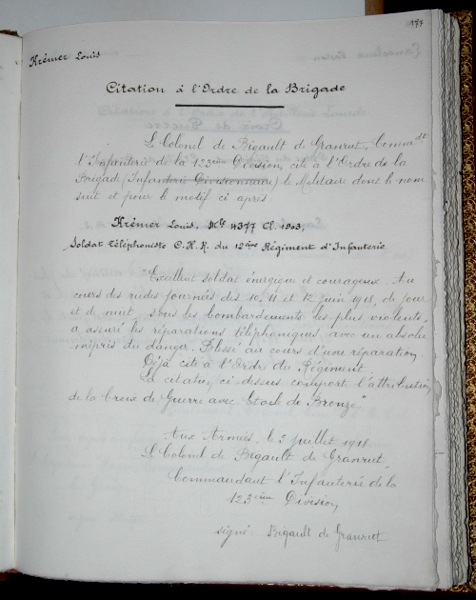 177
Krémer Louis
Citation à l'Ordre de la Brigade
Le Colonel de Bigault de Granrut, Commdt
l'Infanterie de la 123ème Division, cite à l'Ordre de la
Brigade (Infanterie Divisionnaire) le Militaire dont le nom
suit et pour le motif ci après:
Krémer Louis, Mle 4377 Cl. 1903,
Soldat Téléphoniste C.H.R. du 12ème Régiment d'Infanterie
"Excellent soldat énergique et courageux. Au
cours des rudes journées des 10, 11 et 12 juin 1918, de jour
et de nuit, sous les bombardements les plus violents,
a assuré les réparations téléphoniques, avec un absolu
mépris du danger. Blessé au cours d'une réparation.
Déjà cité à l'Ordre du Régiment.
La citation ci-dessus comporte l'attribution
de la Croix de Guerre avec Etoile de Bronze"
Aux Armées, le 3 juillet 1918
Le Colonel de Bigault de Granrut,
Commandant l'Infanterie de la
123ème Division
signé: Bigault de Granrut